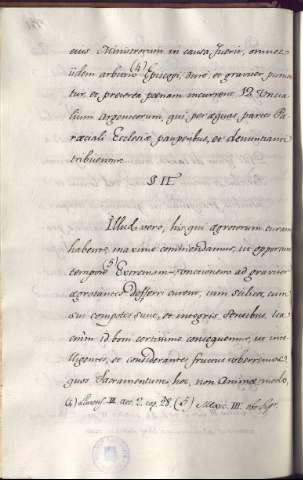 eius Ministrorum in causa fuerit, omnes
iidem arbitrio (4) Episcopi, acrè, et graviter punian
tur, et, preterea poenam incurrent 12 Uncia
lium Argenteorum, qui, per æquas partes Pa
rœciali Ecclesiæ pauperibus, et denuntianti
tribuentur.
§ II.
Illud vero, his, qui ægrotorum curam
habent, maxime commendamus, ut opportuno
tempore (5) Extremam-Unctionem ad graviter
ægrotantes defferri curent, cum scilicet, cum
sui compotes sunt, et integris sensibus. Ita
enim id boni certissime consequentur, ut intel
ligentes, et considerantes fructus uberrimos
quos Sacramentum hoc, non Animæ modo,
(4) III. act. 2. cap. 28. (5) Mexic. III.